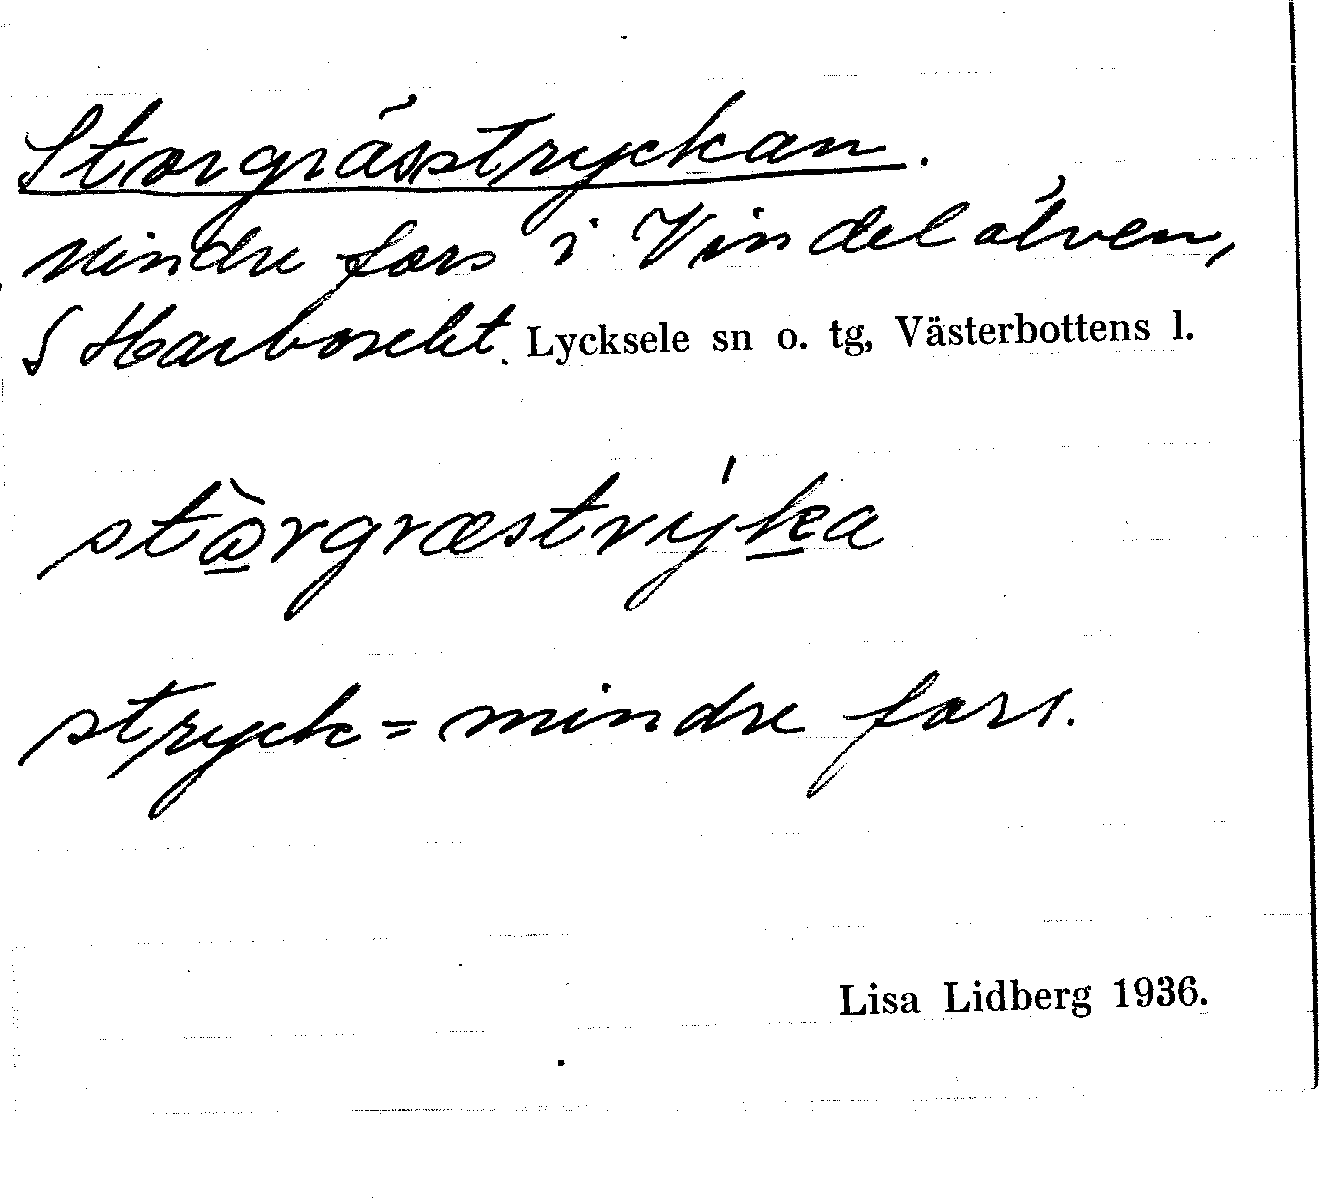 Storgrässtryckan.
Mindre fors i Vindelälven,
S Harboselet. Lycksele sn o. tg, Västerbottens l.
stòrgræstrýka
stryck = mindre fors.
Lisa Lidberg 1936.